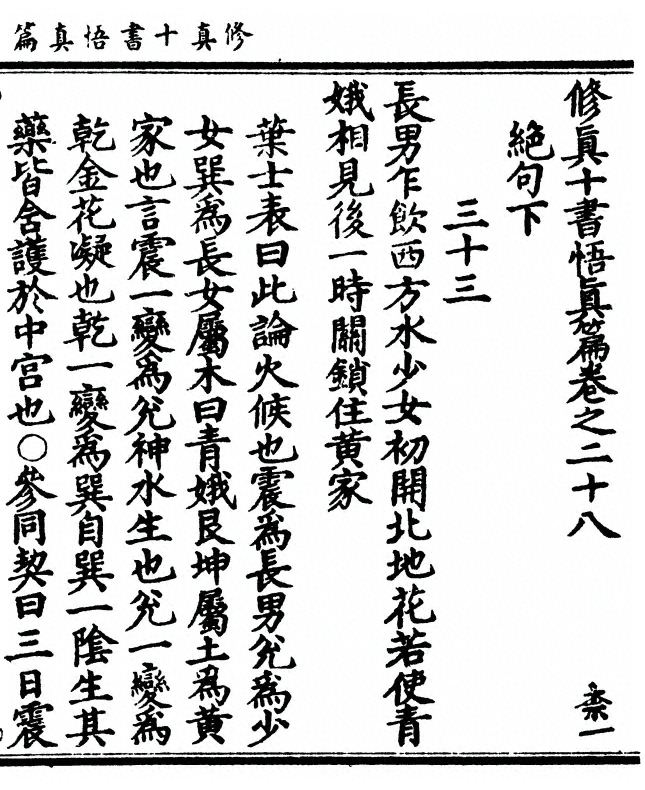 修真十書悟真篇
修眞十書悟眞篇卷之二十八 柰一
絕句下
三十三
長男乍飲西方水少女初開北地花若使青
娥相見後一時關鎖住黃家
葉士表曰此論火候也震爲長男兊爲少
女巽爲長女屬木曰青娥艮坤屬土爲黃
家也言震一變爲兊神水生也兊一變爲
乾金花凝也乾一變爲巽自巽一陰生其
藥皆含護於中宫也〇參同契曰三日震